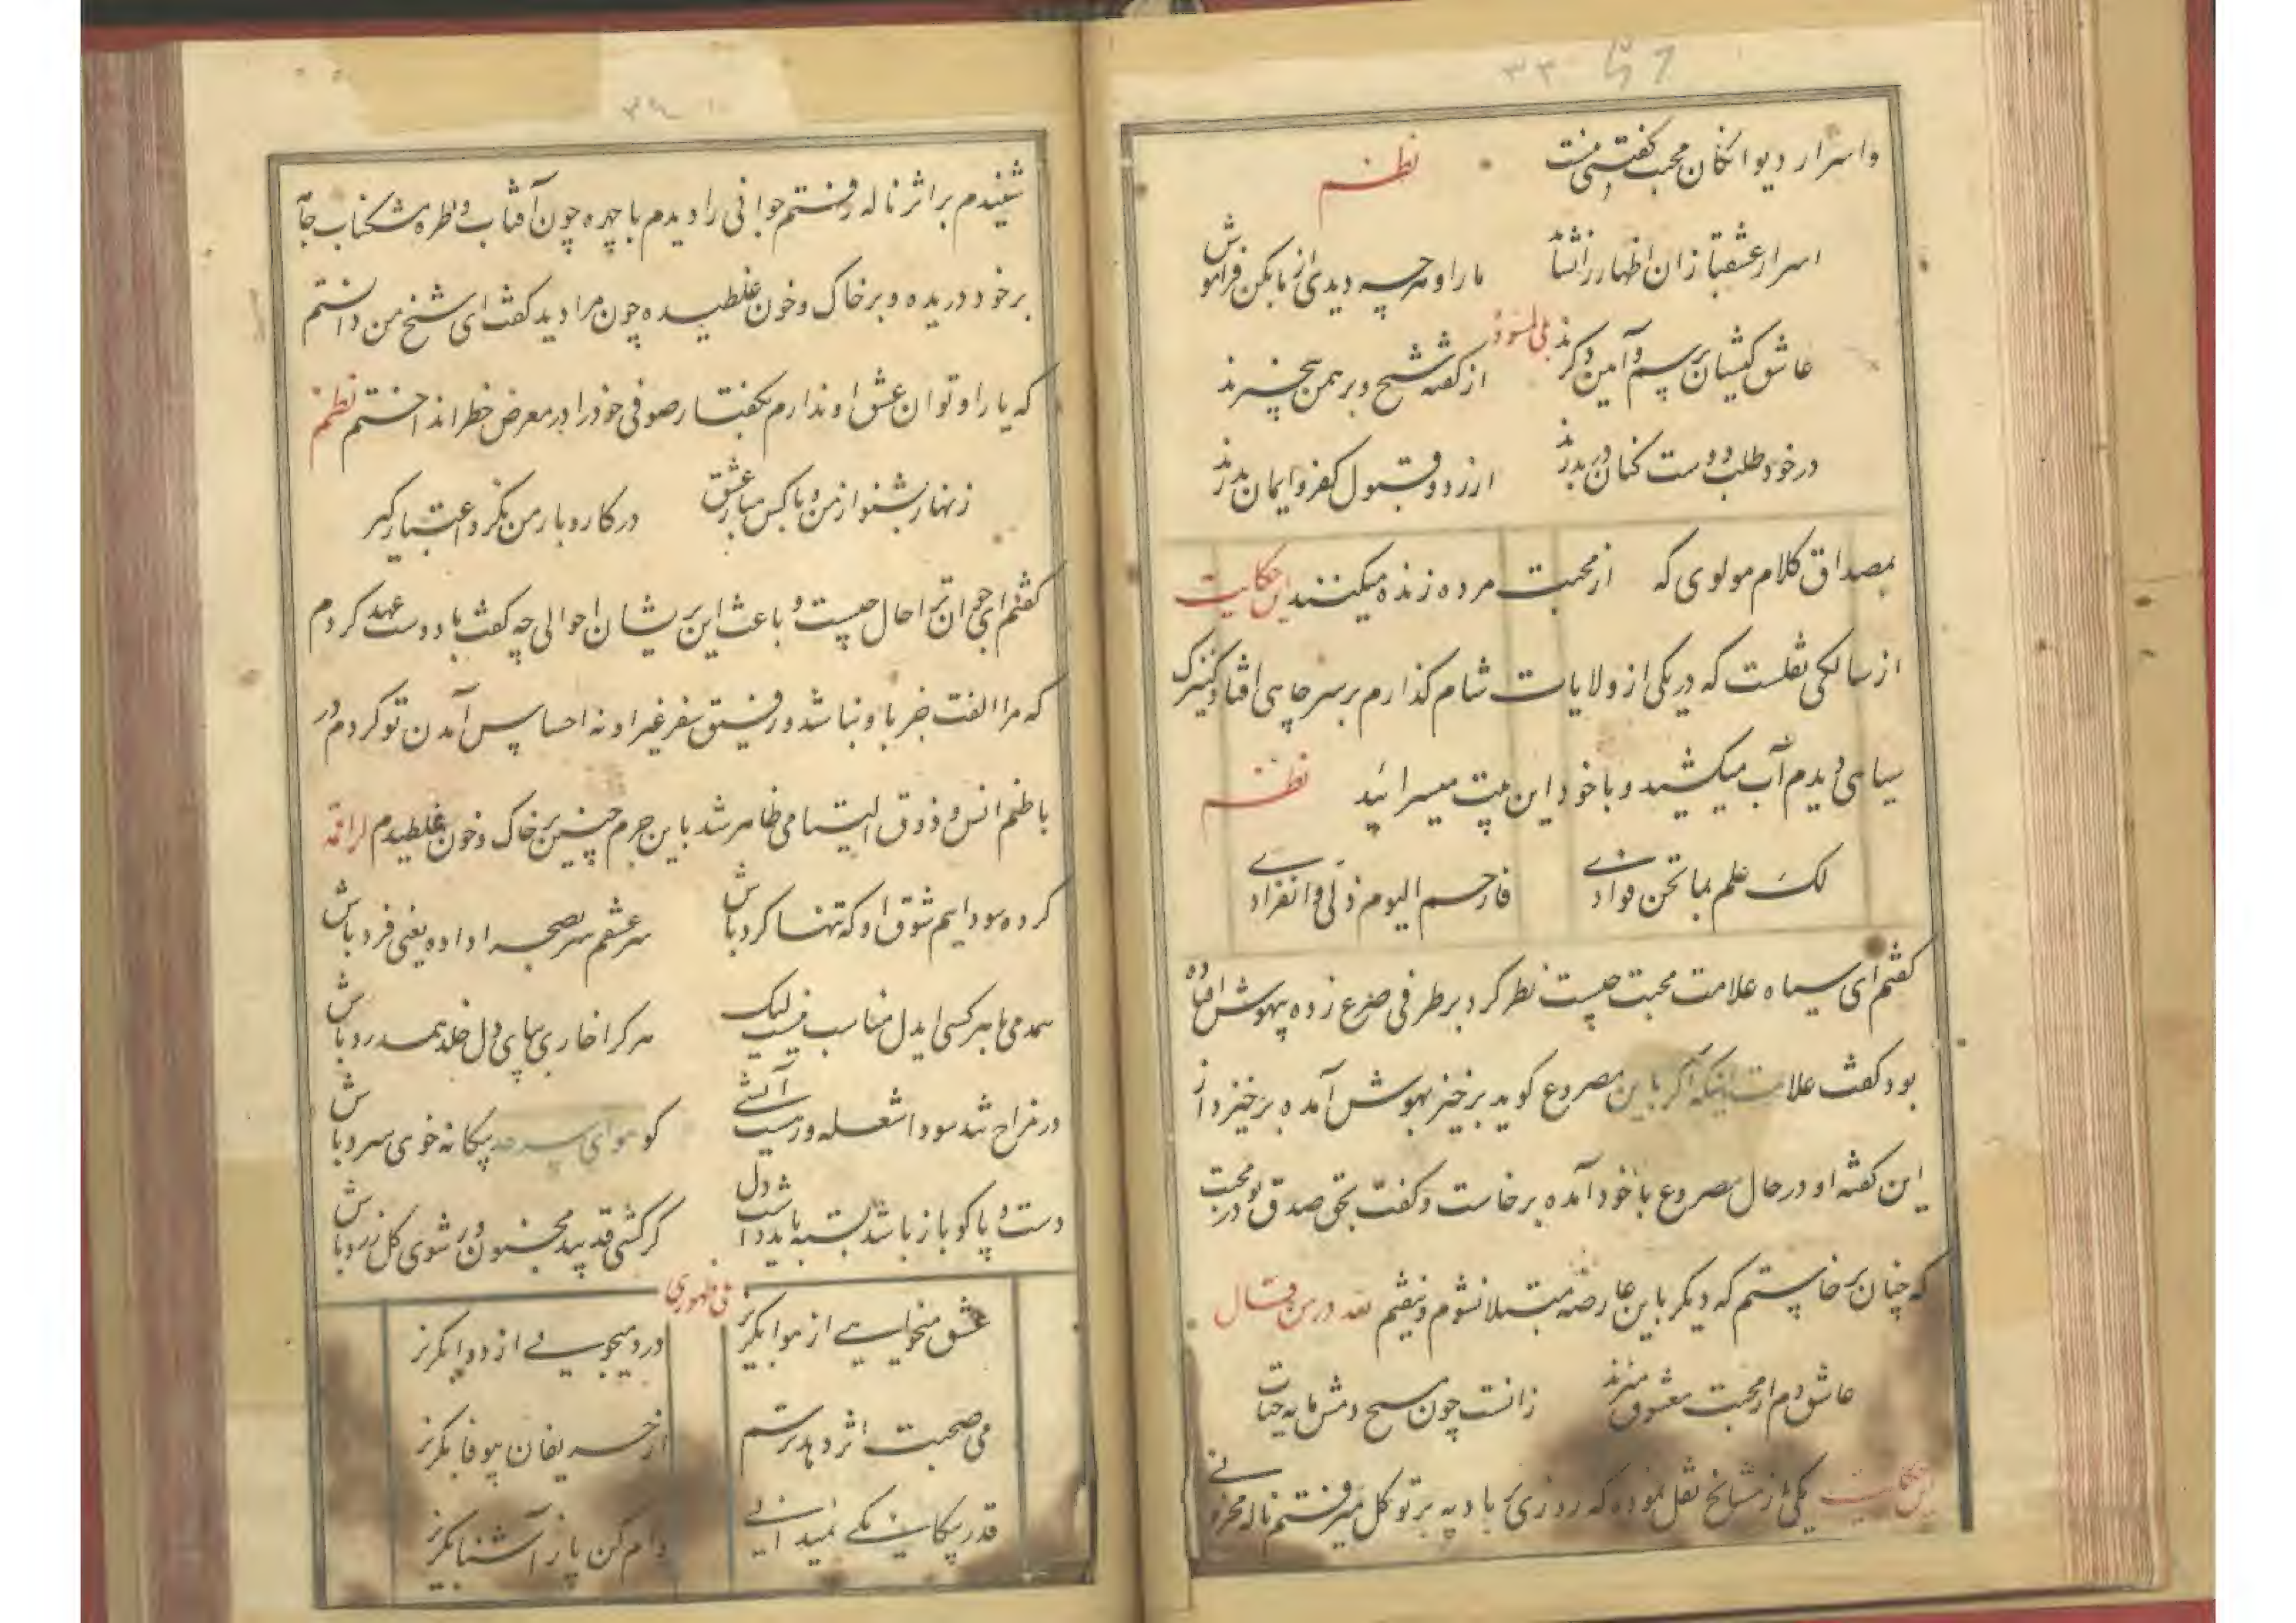 ۳۳
و اسرار دیوانگان محبت گفتنی نیست نظم
اسرار عشقبازان اظهار را نشاید ما را و هرچه دیدی از ما بکن فراموش
عاشق کیشان برسم و آئین دگرند از گفته شیخ و برهمن بیخبرند
در خود طلب دوست کنان در بدرند از رد و قبول کفر و ایمان بدرند
بمصداق کلام مولوی که از محبت مرده زنده میکنند حکایت
از سالکی نقلست که در یکی از ولایات شام گذارم بر سر چاهی افتاد کنیزک
سیاهی دیدم آب میکشید و با خود این بیت میسرائید نظم
لک علم بما تخن فوادی فارحم الیوم ذلی وانفرادی
گفتم ای سیاه علامت محبت چیست نظر کرد بر طرفی صرع زده بیهوش افتاده
بود گفت علامت اینکه اگر باین مصروع گوید برخیز بهوش آمده برخیزد از
این گفته او در حال مصروع با خود آمده برخاست و گفت بحق صدق تو در محبت
که چنان برخاستم که دیگر باین عارضه مبتلا نشوم و نیفتم لله در من قال
عاشق دم از محبت معشوق میزند زانست چون مسیح دمش مایه حیات
حکایت یکی از مشایخ نقل نموده که روزی بادیه بر توکل میرفتم ناله محزونی
شنیدم بر اثر ناله رفتم جوانی را دیدم با چهره چون آفتاب و طره مشکناب جامه
بر خود دریده و بر خاک و خون غلطیده چون مرا دید گفت ای شیخ من دانستم
که یارا و توان عشق او ندارم بگفتار صوفی خود را در معرض خطر انداختم نظم
زنهار بشنو از من و با کس مباز عشق در کار و بار من نگر و اعتبار گیر
گفتم ای جوان ترا حال چیست و باعث این پریشان احوالی چه گفت با دوست عهد کردم
که مرا الفت جز با و نباشد و رفیق سفر غیر او نه احساس آمدن تو کردم در
باطنم انس و ذوق التیامی ظاهر شد باین جرم چنین بر خاک و خون غلطیدم لراقمه
کرده سودایم شوق او که تنها گرد باش سر عشقم سر بصحرا داده یعنی فرد باش
همدمی با هر کسی ایدل مناسب نیست لیک هر کرا خاری بپای دل خلد همدرد باش
در مزاج شد سودا شعله ور آتشی گو هوای سرد بیگانه خوی سرد باش
دست و پا گو باز باشد بسته باید دل گر کشی قد بید مجنون ور شوی گل زرد باش
ظهوری
عشق میخواهی از هوا بگریز درد میجویی از دوا بگریز
می صحبت اثر دهد ترسم از حریفان بیوفا بگریز
قدر بیگانگی نمیدانی وام کن پا ز آشنا بگریز